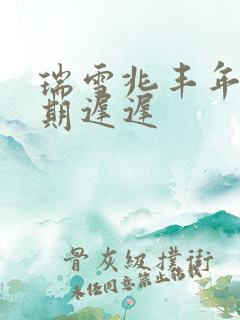 瑞雪兆丰年
期遲遲
骨灰级撲街
未经同意禁止转载